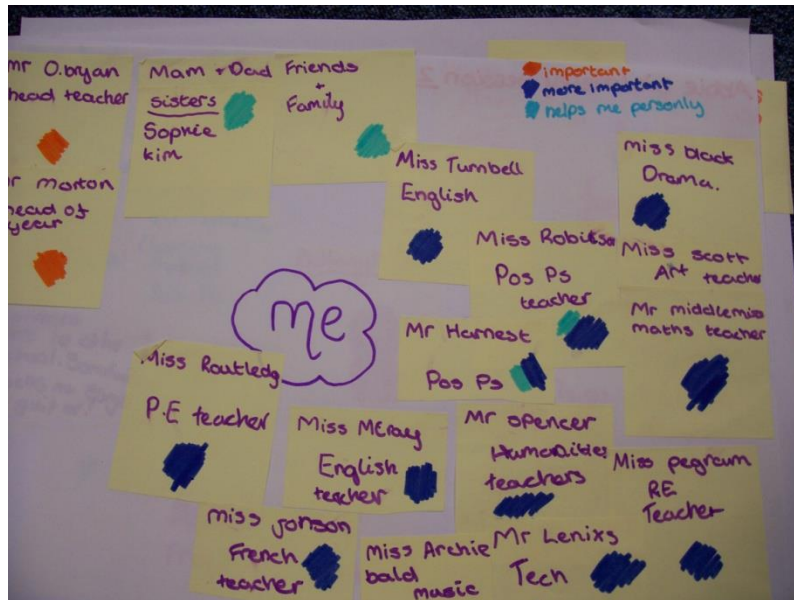 mr O.bryan
head teacher
mr morton
head of
year
Mam + Dad
sisters
Sophie
kim
Friends
+
Family
important
more important
helps me personly
Miss Turnbell
English
Miss Robitson
Pos Ps
teacher
miss black
Drama.
Miss scott
Art teacher
Mr middlemiss
maths teacher
me
Mr Harnest
Pos Ps
Miss Routledg
P.E teacher
Miss
English
teacher
Mr spencer
teachers
Miss pegram
RE
Teacher
miss jonson
French
teacher
Miss Archie
bald
music
Mr Lenixs
Tech